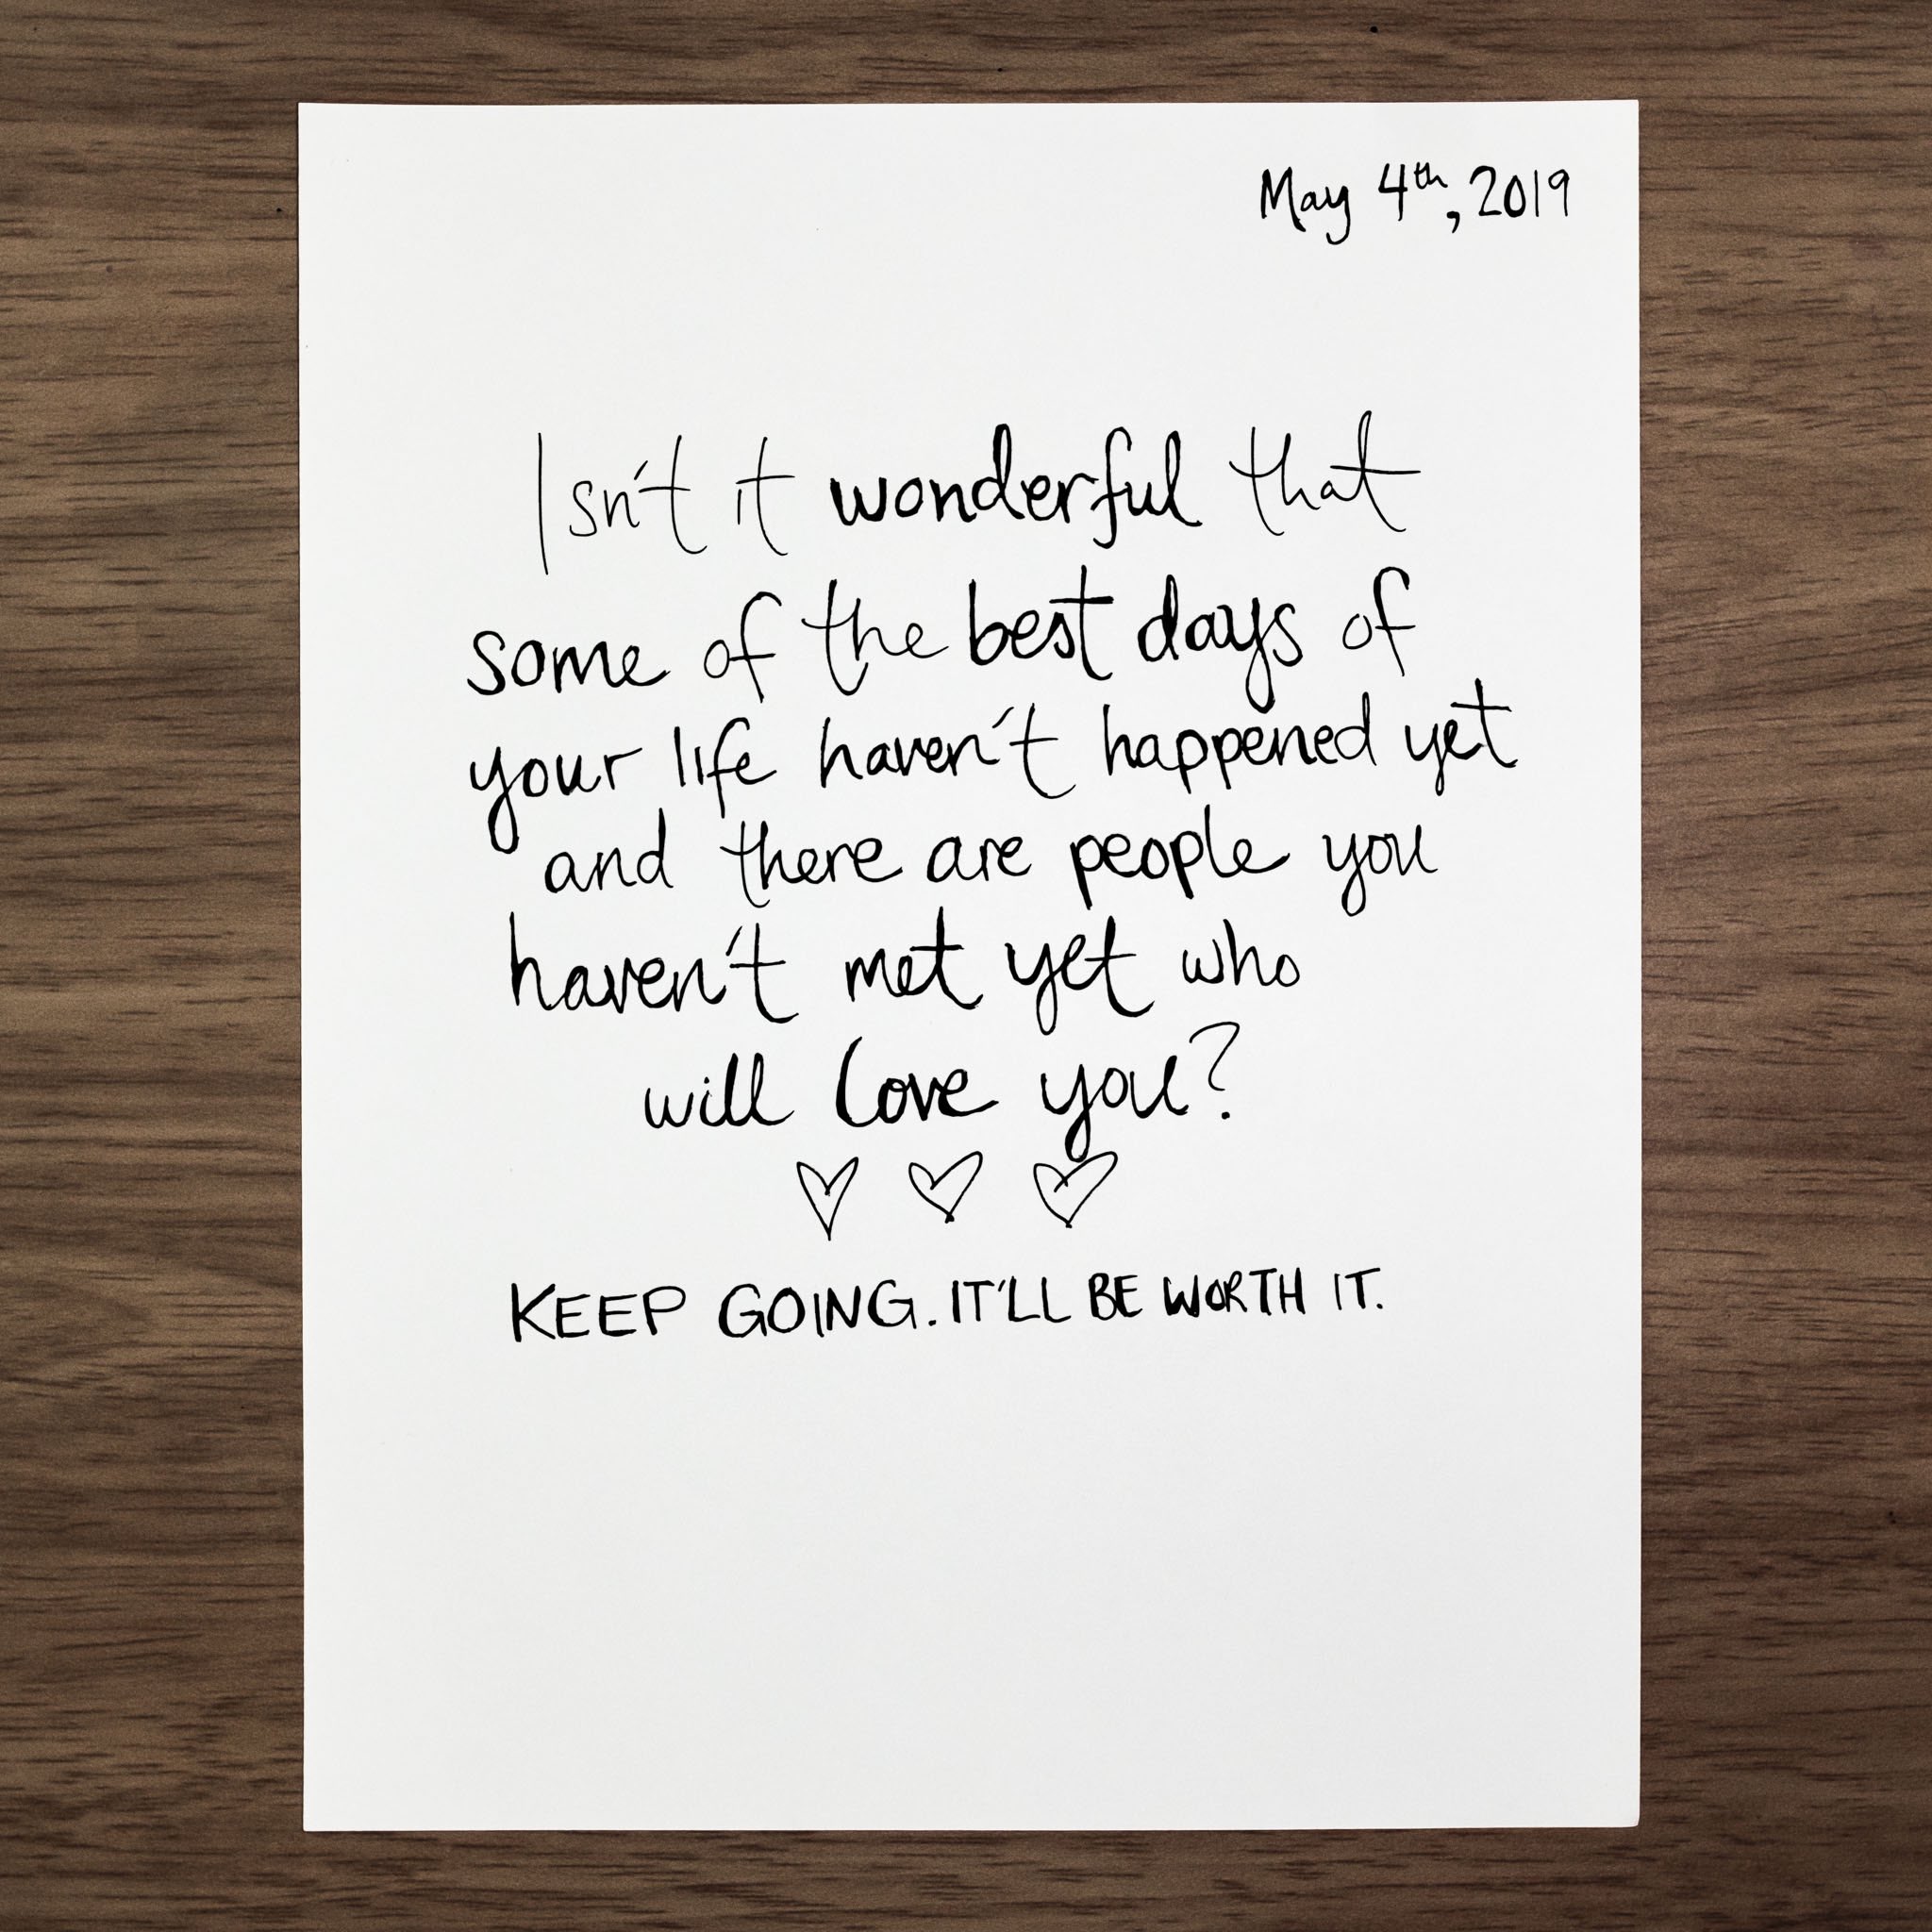 May 4th, 2019
Isn't it wonderful that
some of the best days of
your life haven't happened yet
and there are people you
haven't met yet who
will love you?
♡ ♡ ♡
KEEP GOING. IT'LL BE WORTH IT.